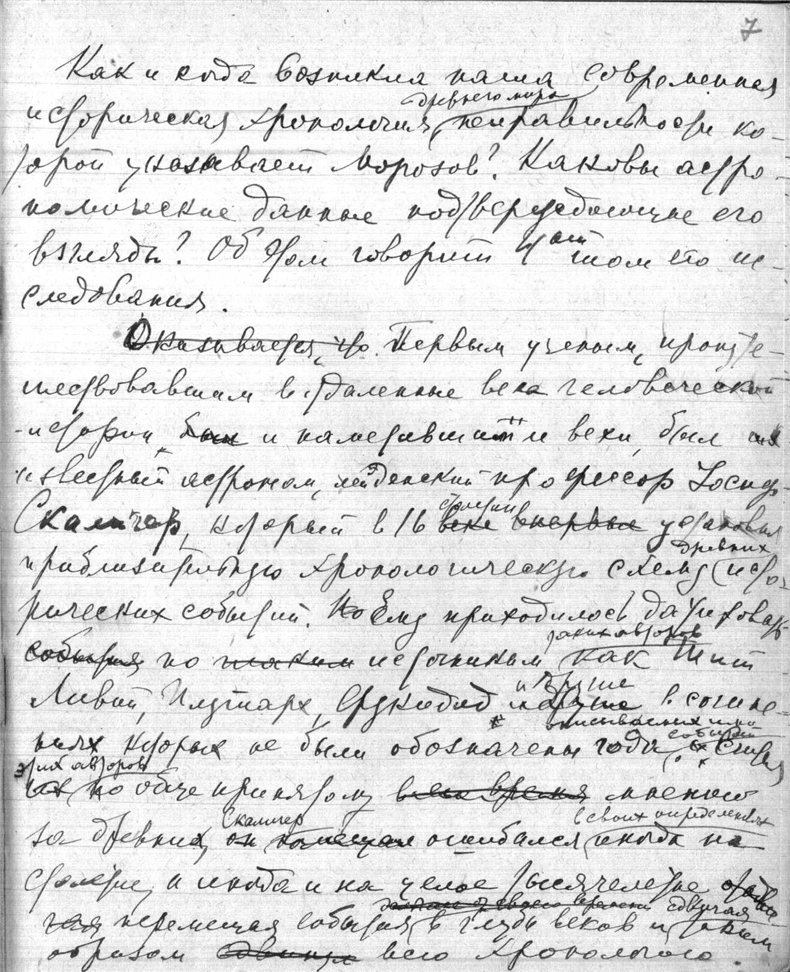 7
Как и когда возникла наша современная
историческая хронология древнего мира, неправильность ко-
торой указывает Морозов? Каковы астро-
номические данные подтверждающие его
взгляды? Об этом говорит 4ый том его ис-
следования.
Оказывается, что Первым ученым, путеше-
шествовавшим в отдаленные века человеческой
истории, был и наметившим ее вехи, был
известный астроном, лейденский профессор Иосиф
Скалигер, который в 16 столетии веке впервые установил
приблизительную хронологическую схему древних исто-
рических событий. Но Ему приходилось датировать
события по таким источникам таких авторов как Тит
Ливий, Плутарх, Фукидид и другие в сочине-
ниях которых не были обозначены года описываемых ими событий. Считая
этих авторов их по общепринятому мнению
за древних, Скалигер он ошибался в своих определениях иногда на
столетие, а иногда и на целое тысячелетие
перемещая события в глубь веков и сдвигая таким
образом всю хронологию.